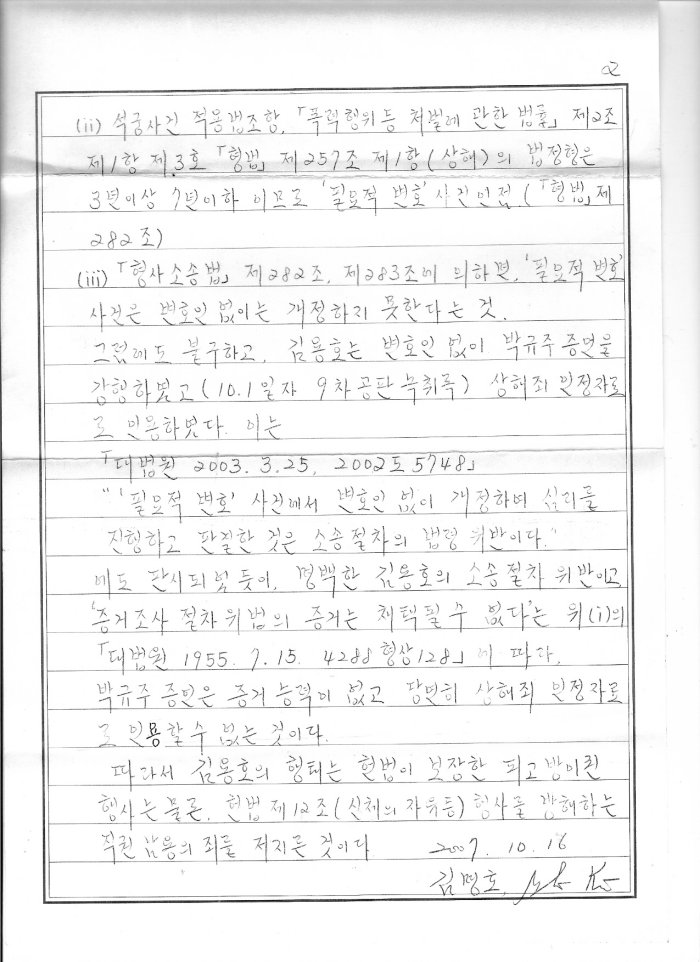 2
(ii) 석궁사건 적용법조항, 「폭력행위등 처벌에 관한 법률」 제2조
제1항 제3호 「형법」 제257조 제1항(상해)의 법정형은
3년이상 7년이하 이므로 '필요적 변호' 사건인점. (「형법」제
282조)
(iii) 「형사소송법」 제282조, 제283조에 의하면, '필요적 변호'
사건은 변호인 없이는 개정하지 못한다는 것.
그럼에도 불구하고, 김용호는 변호인 없이 박규주 증인을
강행하였고 (10.1일자 9차공판 녹취록) 상해죄 인정자료
로 인용하였다. 이는
「대법원 2003.3.25, 2002도5748」
"'필요적 변호' 사건에서 변호인 없이 개정하여 심리를
진행하고 판결한 것은 소송절차의 법령 위반이다."
에도 판시되었듯이, 명백한 김용호의 소송절차 위반이고
'증거조사 절차위법의 증거는 채택될 수 없다'는 위(i)의
「대법원 1955.7.15. 4288형상128」에 따라,
박규주 증언은 증거능력이 없고 당연히 상해죄 인정자료
로 인용할 수 없는 것이다.
따라서 김용호의 행태는 헌법이 보장한 피고방어권
행사는 물론, 헌법 제12조(신체의 자유등) 행사를 방해하는
직권 남용의 죄를 저지른 것이다 2007. 10. 16
김명호,